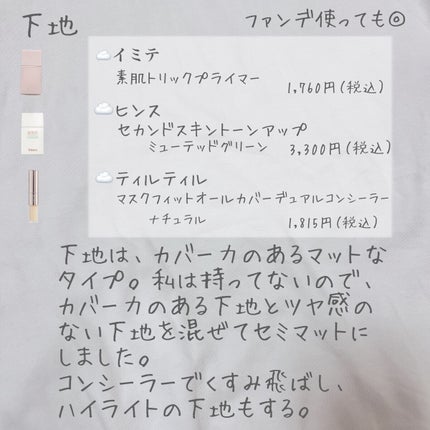 下地
ファンデ使っても◎
イミテ
素肌トリックプライマー
1,760円(税込)
ヒンス
セカンドスキントーンアップ
ミューテッドグリーン 3,300円(税込)
ティルティル
マスクフィットオールカバーデュアルコンシーラー
ナチュラル 1,815円(税込)
下地は、カバー力のあるマットな
タイプ。私は持ってないので、
カバー力のある下地とツヤ感の
ない下地を混ぜてセミマットに
しました。
コンシーラーでくすみ飛ばし、
ハイライトの下地もする。